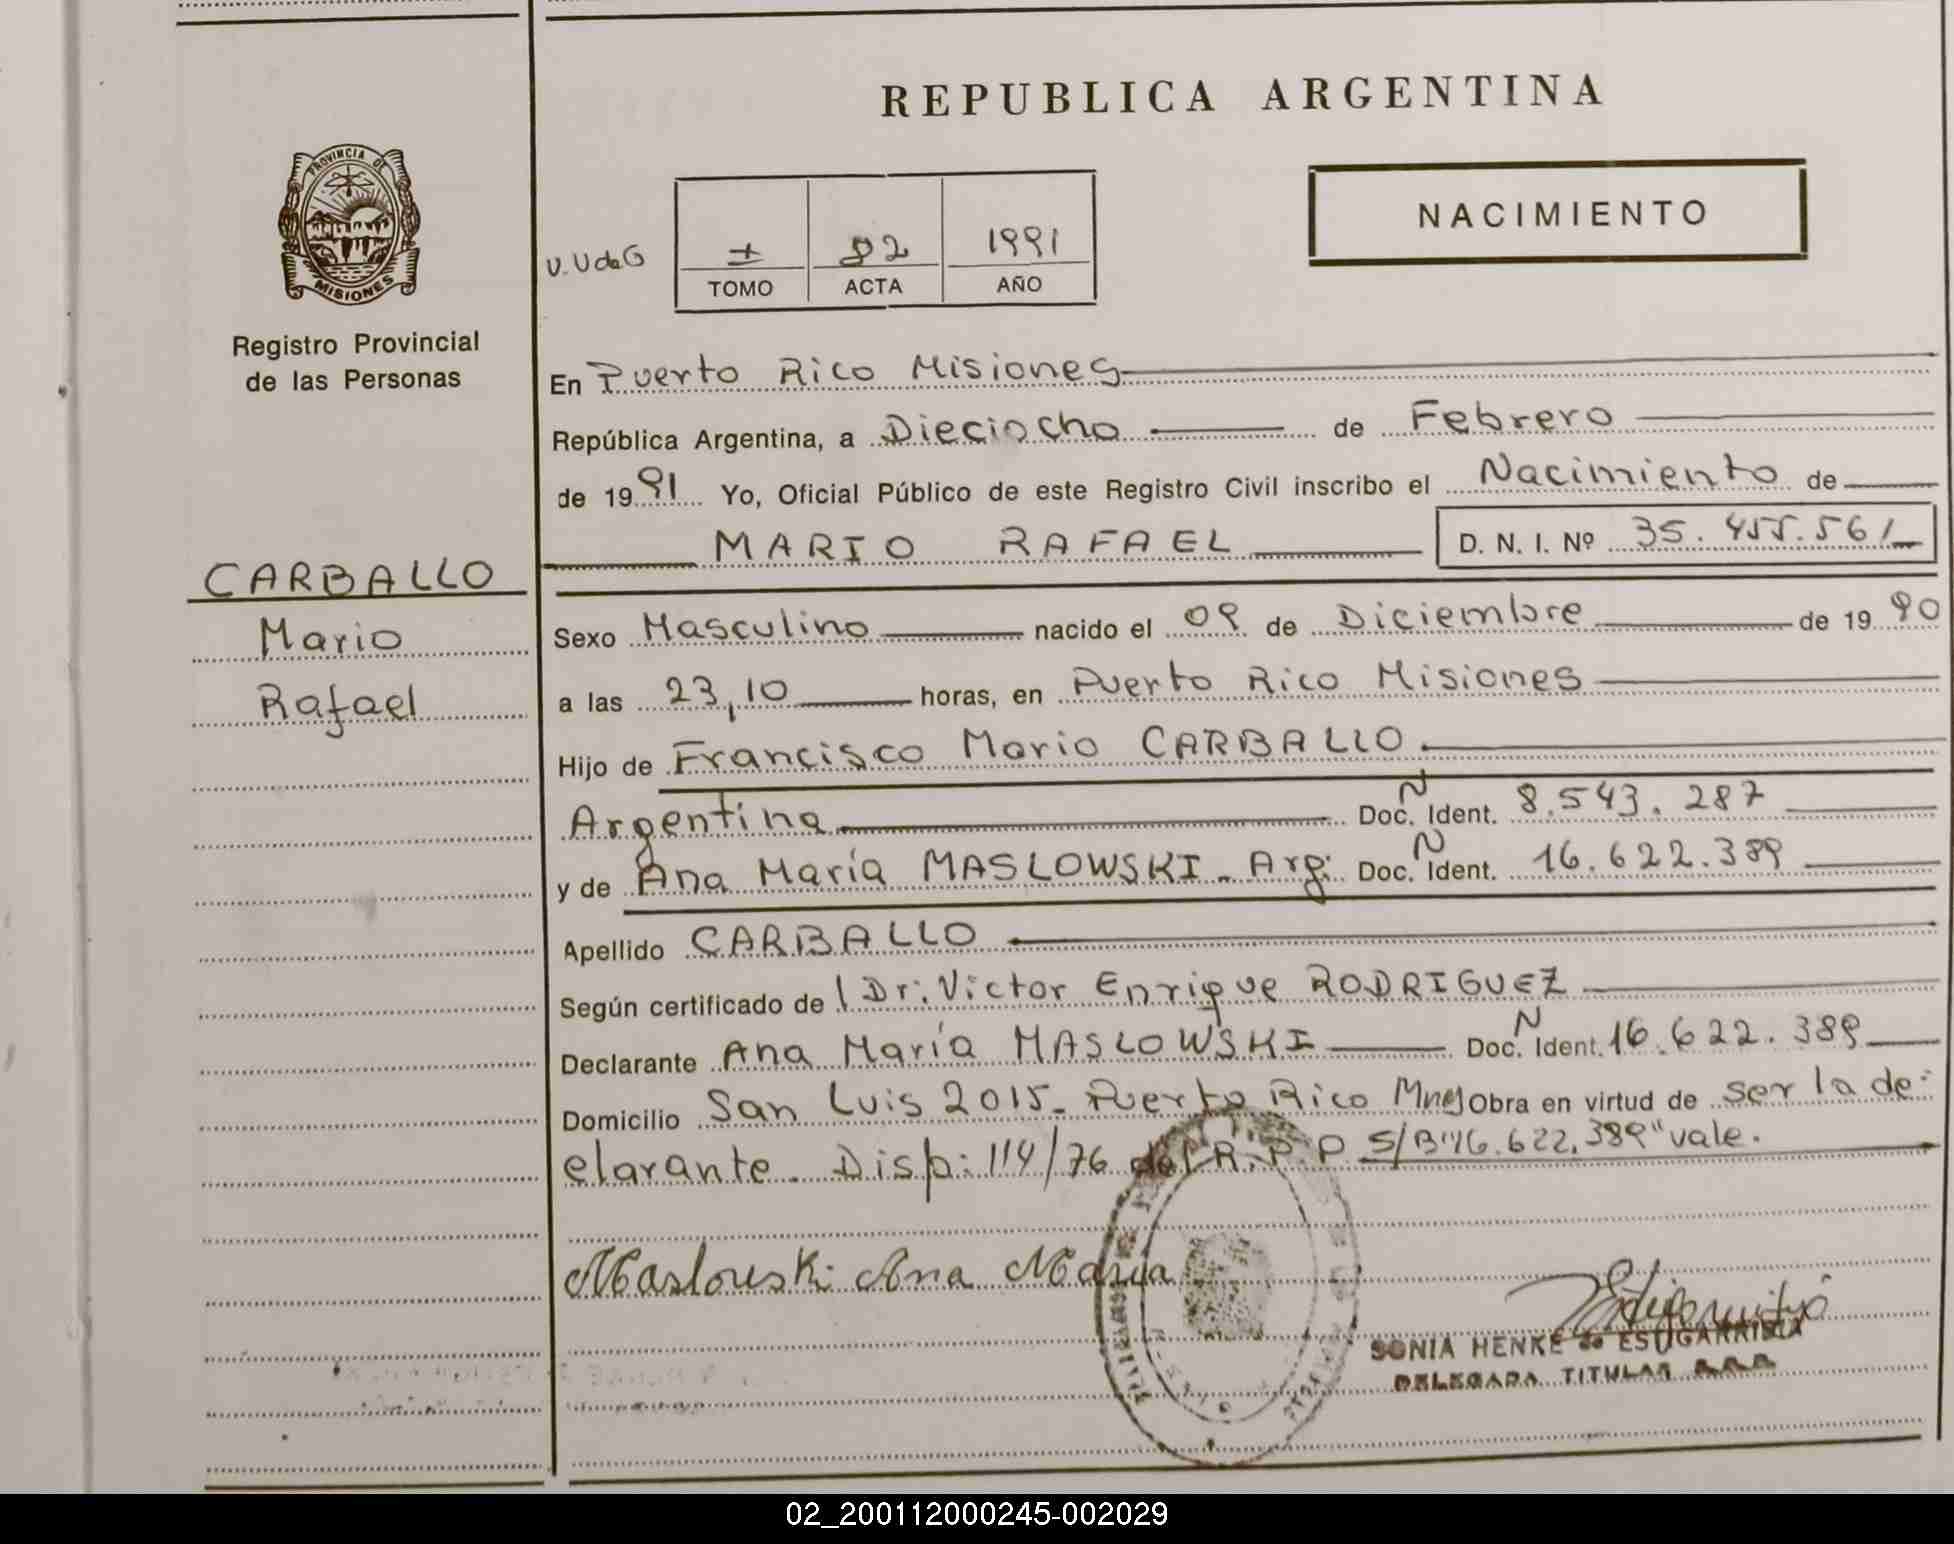 REPUBLICA ARGENTINA
PROVINCIA DE MISIONES
Registro Provincial
de las Personas
NACIMIENTO
U.UdeG
I 82 1991
TOMO ACTA AÑO
En Puerto Rico Misiones
República Argentina, a Dieciocho de Febrero
de 1991 Yo, Oficial Público de este Registro Civil inscribo el Nacimiento de
MARIO RAFAEL D. N. I. Nº 35.455.561
CARBALLO
Mario
Rafael
Sexo Masculino nacido el 09 de Diciembre de 1990
a las 23,10 horas, en Puerto Rico Misiones
Hijo de Francisco Mario CARBALLO
Argentina Doc. N Ident. 8.543.287
y de Ana María MASLOWSKI - Arg: Doc. N Ident. 16.622.389
Apellido CARBALLO
Según certificado de l Dr. Victor Enrique RODRIGUEZ
Declarante Ana María MASLOWSKI Doc. N Ident. 16.622.389
Domicilio San Luis 2015- Puerto Rico Mnes Obra en virtud de ser la de-
clarante. Disp: 114/76 del R.P.P S/B "16.622.389" vale.
Maslowski Ana María
SONIA HENKE de ESUGARRISTA
DELEGADA TITULAR
02_200112000245-002029